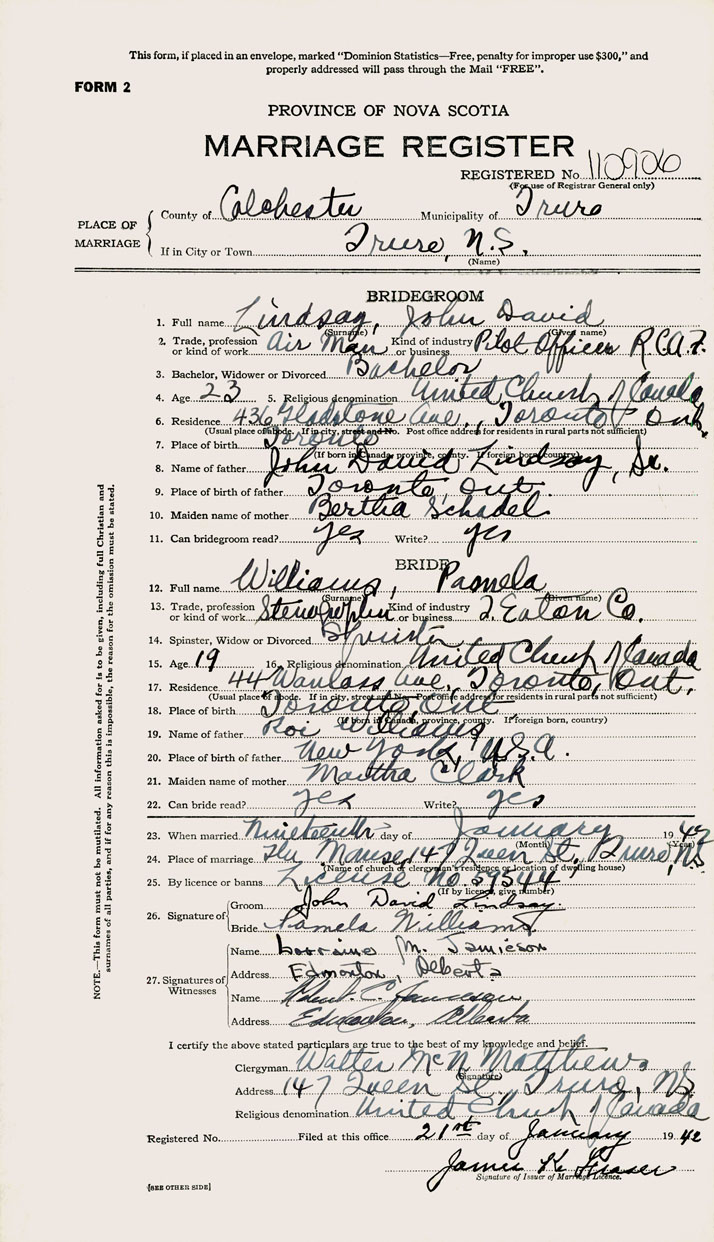 This form, if placed in an envelope, marked "Dominion Statistics—Free, penalty for improper use $300," and
properly addressed will pass through the Mail "FREE".
FORM 2
PROVINCE OF NOVA SCOTIA
MARRIAGE REGISTER
REGISTERED No. 110906
(For use of Registrar General only)
PLACE OF MARRIAGE
County of Colchester Municipality of Truro
If in City or Town Truro, N.S.
(Name)
BRIDEGROOM
1. Full name Lindsay, John David
(Surname) (Given name)
2. Trade, profession or kind of work Air Man Kind of industry or business Pilot Officer R.C.A.F.
3. Bachelor, Widower or Divorced Bachelor
4. Age 23 5. Religious denomination United Church of Canada
6. Residence 436 Gladstone Ave., Toronto, Ont.
(Usual place of abode. If in city, street and No. Post office address for residents in rural parts not sufficient)
7. Place of birth Toronto
(If born in Canada, province, county. If foreign born, country)
8. Name of father John David Lindsay, Sr.
9. Place of birth of father Toronto, Ont.
10. Maiden name of mother Bertha Schadel
11. Can bridegroom read? yes Write? yes
BRIDE
12. Full name Williams, Pamela
(Surname) (Given name)
13. Trade, profession or kind of work Stenographer Kind of industry or business T. Eaton Co.
14. Spinster, Widow or Divorced Spinster
15. Age 19 16. Religious denomination United Church of Canada
17. Residence 44 Wanlass Ave, Toronto, Ont.
(Usual place of abode. If in city, street and No. Post office address for residents in rural parts not sufficient)
18. Place of birth Toronto, Ont.
(If born in Canada, province, county. If foreign born, country)
19. Name of father Roi Williams
20. Place of birth of father New York, U.S.A.
21. Maiden name of mother Martha Clark
22. Can bride read? yes Write? yes
23. When married Nineteenth day of January 19 42
(Month) (Year)
24. Place of marriage The Manse, 147 Queen St., Truro, N.S.
(Name of church or clergyman's residence or location of dwelling house)
25. By licence or banns License No. 59544
(If by licence, give number)
26. Signature of
Groom John David Lindsay.
Bride Pamela Williams
27. Signatures of Witnesses
Name Lorraine M. Jamieson
Address Edmonton, Alberta
Name C. Jamieson
Address Edmonton, Alberta
I certify the above stated particulars are true to the best of my knowledge and belief.
Clergyman Walter McN Matthews
(Signature)
Address 147 Queen St., Truro, N.S.
Religious denomination United Church of Canada
Registered No. Filed at this office 21st day of January 19 42
James K. Fraser
Signature of Issuer of Marriage Licence.
[SEE OTHER SIDE]
NOTE.—This form must not be mutilated. All information asked for is to be given, including full Christian and
surnames of all parties, and if for any reason this is impossible, the reason for the omission must be stated.